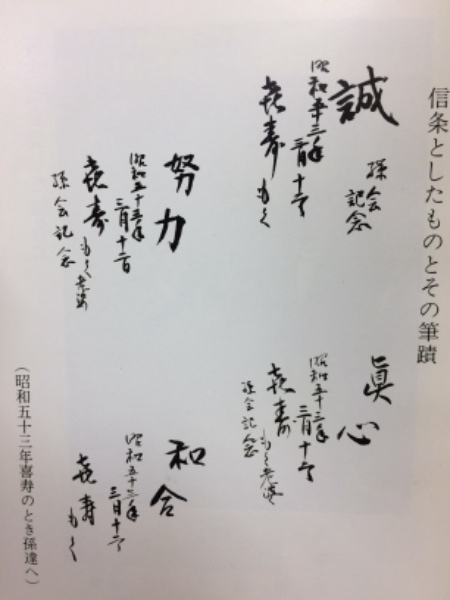 信条としたものとその筆蹟
誠
孫会
記念
昭和五十三年
三月十二日
喜寿 もく
眞心
昭和五十三年
三月十二日
喜寿 もく老婆
孫会記念
努力
昭和五十三年
三月十二日
喜寿 もく老婆
孫会記念
和合
昭和五十三年
三月十二日
喜寿 もく
(昭和五十三年喜寿のとき孫達へ)